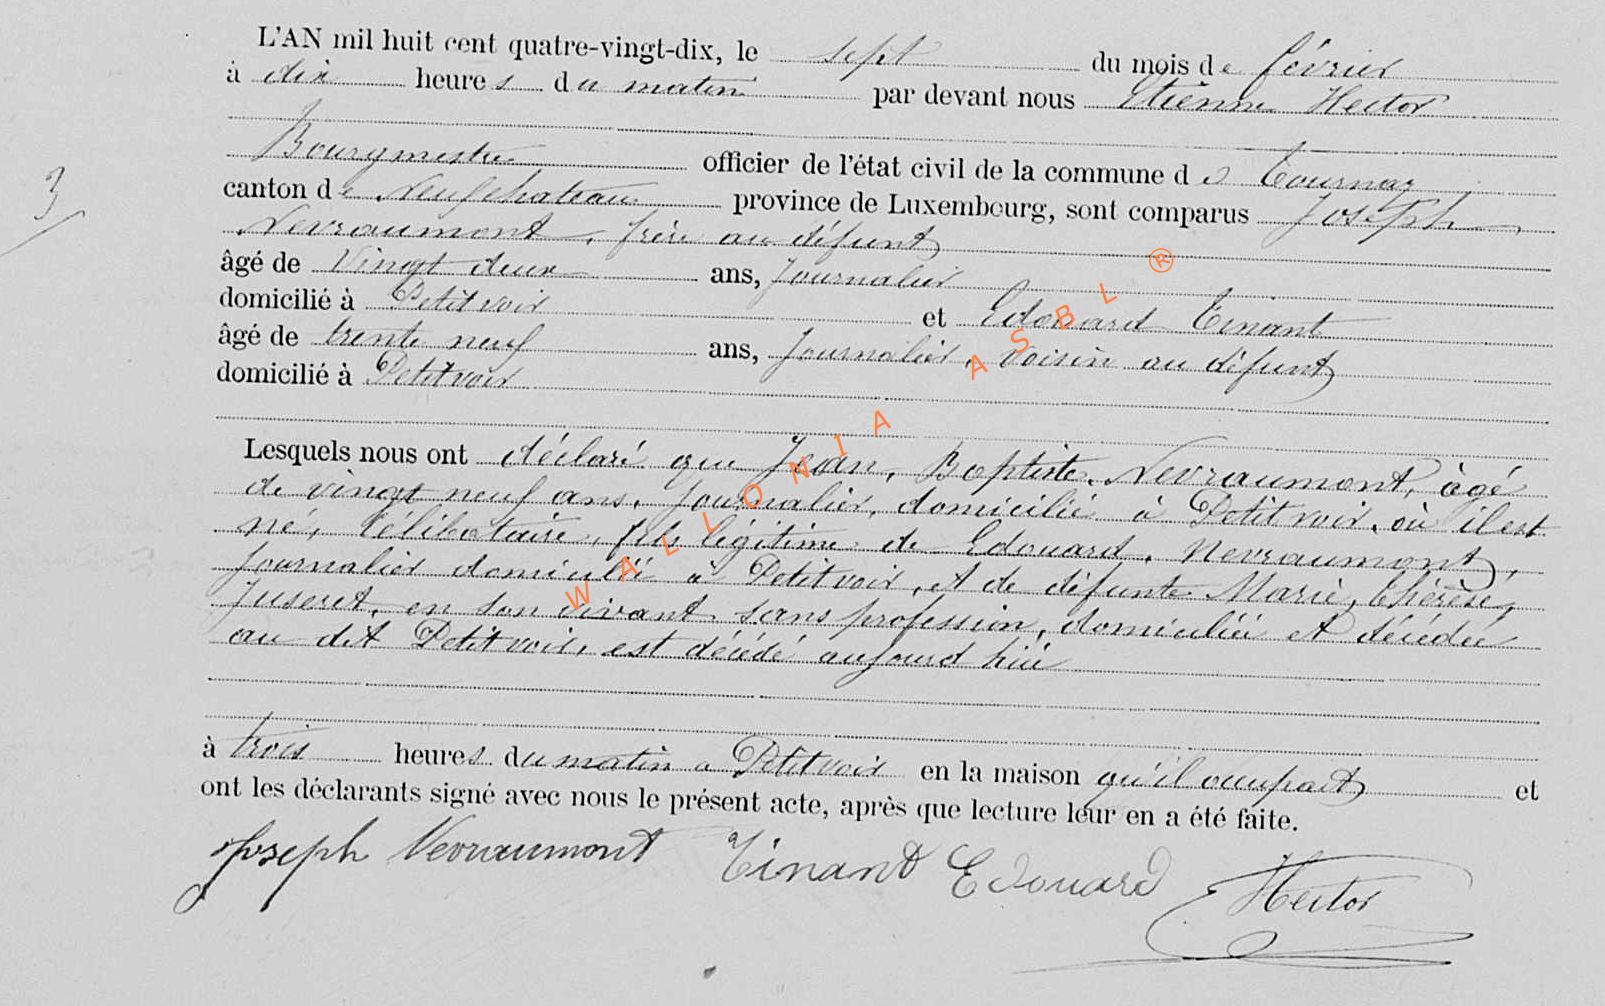 L'AN mil huit cent quatre-vingt-dix, le sept du mois de février
à dix heures du matin par devant nous Etienne Hector
Bourgmestre officier de l'état civil de la commune de Tournay
canton de Neufchateau province de Luxembourg, sont comparus Joseph
Nevraumont, frère au défunt
âgé de vingt deux ans, Journalier
domicilié à Petitvoir et Edouard Tinant
âgé de trente neuf ans, Journalier, voisin au défunt
domicilié à Petitvoir
3/
Lesquels nous ont déclaré que Jean, Baptiste, Nevraumont, âgé
de vingt neuf ans, Journalier, domicilié à Petitvoir, où il est
né, célibataire, fils légitime de Edouard, Nevraumont,
Journalier domicilié à Petitvoir, et de défunte Marie, Thérèse,
Juseret, en son vivant sans profession, domiciliée et décédée
au dit Petitvoir, est décédé aujourd'hui
à trois heures du matin a Petitvoir en la maison qu'il occupait et
ont les déclarants signé avec nous le présent acte, après que lecture leur en a été faite.
Joseph Nevraumont Tinant Edouard Hector
WALLONIA ASBL ®